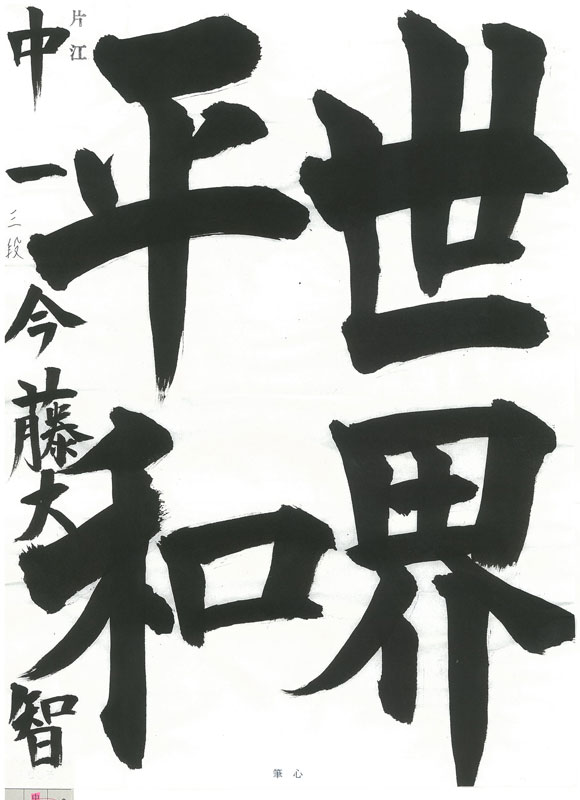 世界
平和
片江
中一 今藤大智
三段
心筆